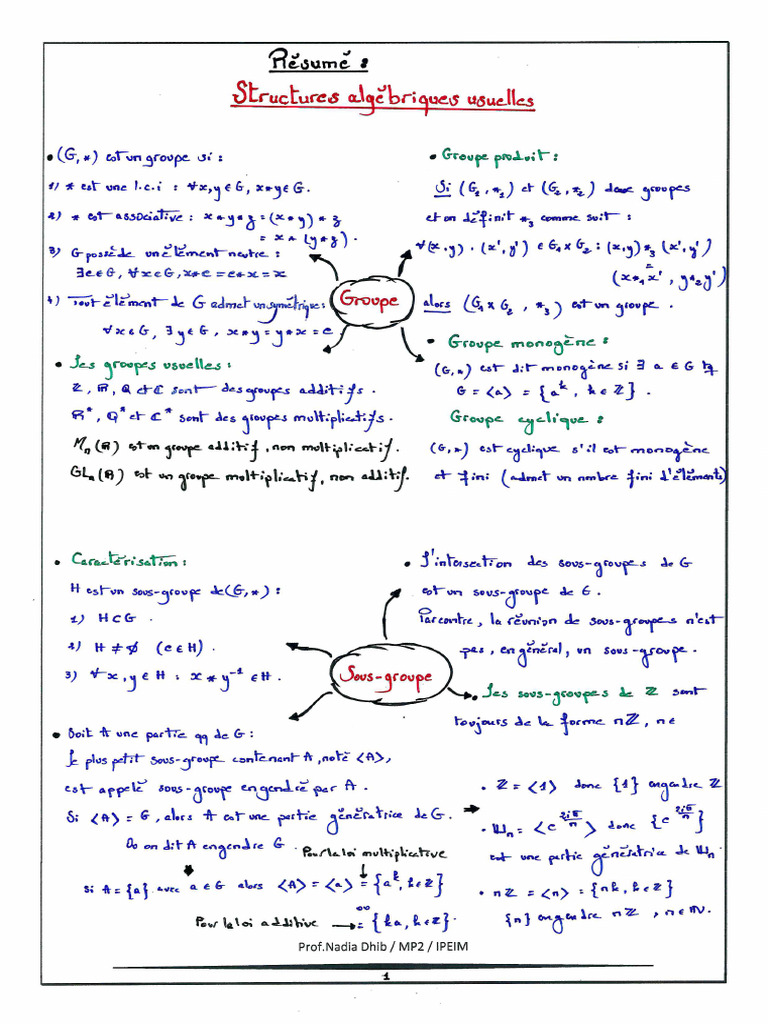 Résumé :
Structures algébriques usuelles
• (G, *) est un groupe si :
1) * est une l.c.i : ∀x,y ∈ G, x*y ∈ G.
2) * est associative : x*y*z = (x*y)*z
= x*(y*z).
3) G possède un élément neutre :
∃e∈G, ∀x∈G, x*e = e*x = x
4) Tout élément de G admet un symétrique :
∀x∈G, ∃y∈G, x*y = y*x = e
• Les groupes usuelles :
ℤ, ℝ, ℚ et ℂ sont des groupes additifs.
ℝ*, ℚ* et ℂ* sont des groupes multiplicatifs.
Mₙ(ℝ) est un groupe additif, non multiplicatif.
GLₙ(ℝ) est un groupe multiplicatif, non additif.
Groupe
• Groupe produit :
Si (G₁, *₁) et (G₂, *₂) deux groupes
et on définit *₃ comme suit :
∀(x,y), (x',y') ∈ G₁×G₂ : (x,y) *₃ (x',y')
=
(x *₁ x', y *₂ y')
alors (G₁×G₂, *₃) est un groupe.
• Groupe monogène :
(G,*) est dit monogène si ∃ a ∈ G tq
G = <a> = {aᵏ, k∈ℤ}.
Groupe cyclique :
(G,*) est cyclique s'il est monogène
et fini (admet un nmbre fini d'éléments)
• Caractérisation :
H est un sous-groupe de (G,*) :
1) H⊂G.
2) H ≠ ∅ (e∈H).
3) ∀x,y∈H : x*y⁻¹ ∈ H.
Sous-groupe
• L'intersection des sous-groupes de G
est un sous-groupe de G.
Parcontre, la réunion de sous-groupes n'est
pas, en général, un sous-groupe.
• Les sous-groupes de ℤ sont
toujours de la forme nℤ, n∈
• Soit A une partie qq de G :
Le plus petit sous-groupe contenant A, noté <A>,
est appelé sous-groupe engendré par A.
Si <A> = G, alors A est une partie génératrice de G.
Ou on dit A engendre G
Pour la loi multiplicative
Si A = {a} avec a∈G alors <A> = <a> = {aᵏ, k∈ℤ}
ou
Pour la loi additive → = {ka, k∈ℤ}.
• ℤ = <1> donc {1} engendre ℤ
• 𝕌ₙ = <e^(2iπ/n)> donc {e^(2iπ/n)}
est une partie génératrice de 𝕌ₙ
• nℤ = <n> = {nk, k∈ℤ}
{n} engendre nℤ, n∈ℕ.
Prof.Nadia Dhib / MP2 / IPEIM
1